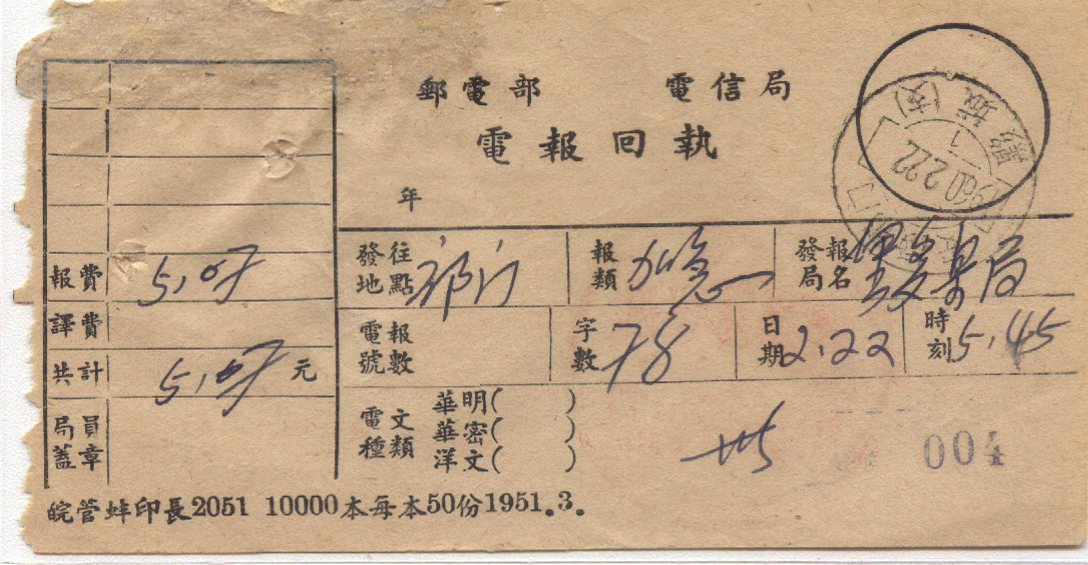 郵電部 電信局
電報回執
年
1960.2.22
1
發往地點 祁门
報類 加急
發報局名 黟县局
報費 5.07
譯費
電報號數
字數 78
日期 2.22
時刻 5.45
共計 5.07 元
局員蓋章
電文種類
華明( )
華密( )
洋文( )
004
皖管蚌印長2051 10000本每本50份1951.3.